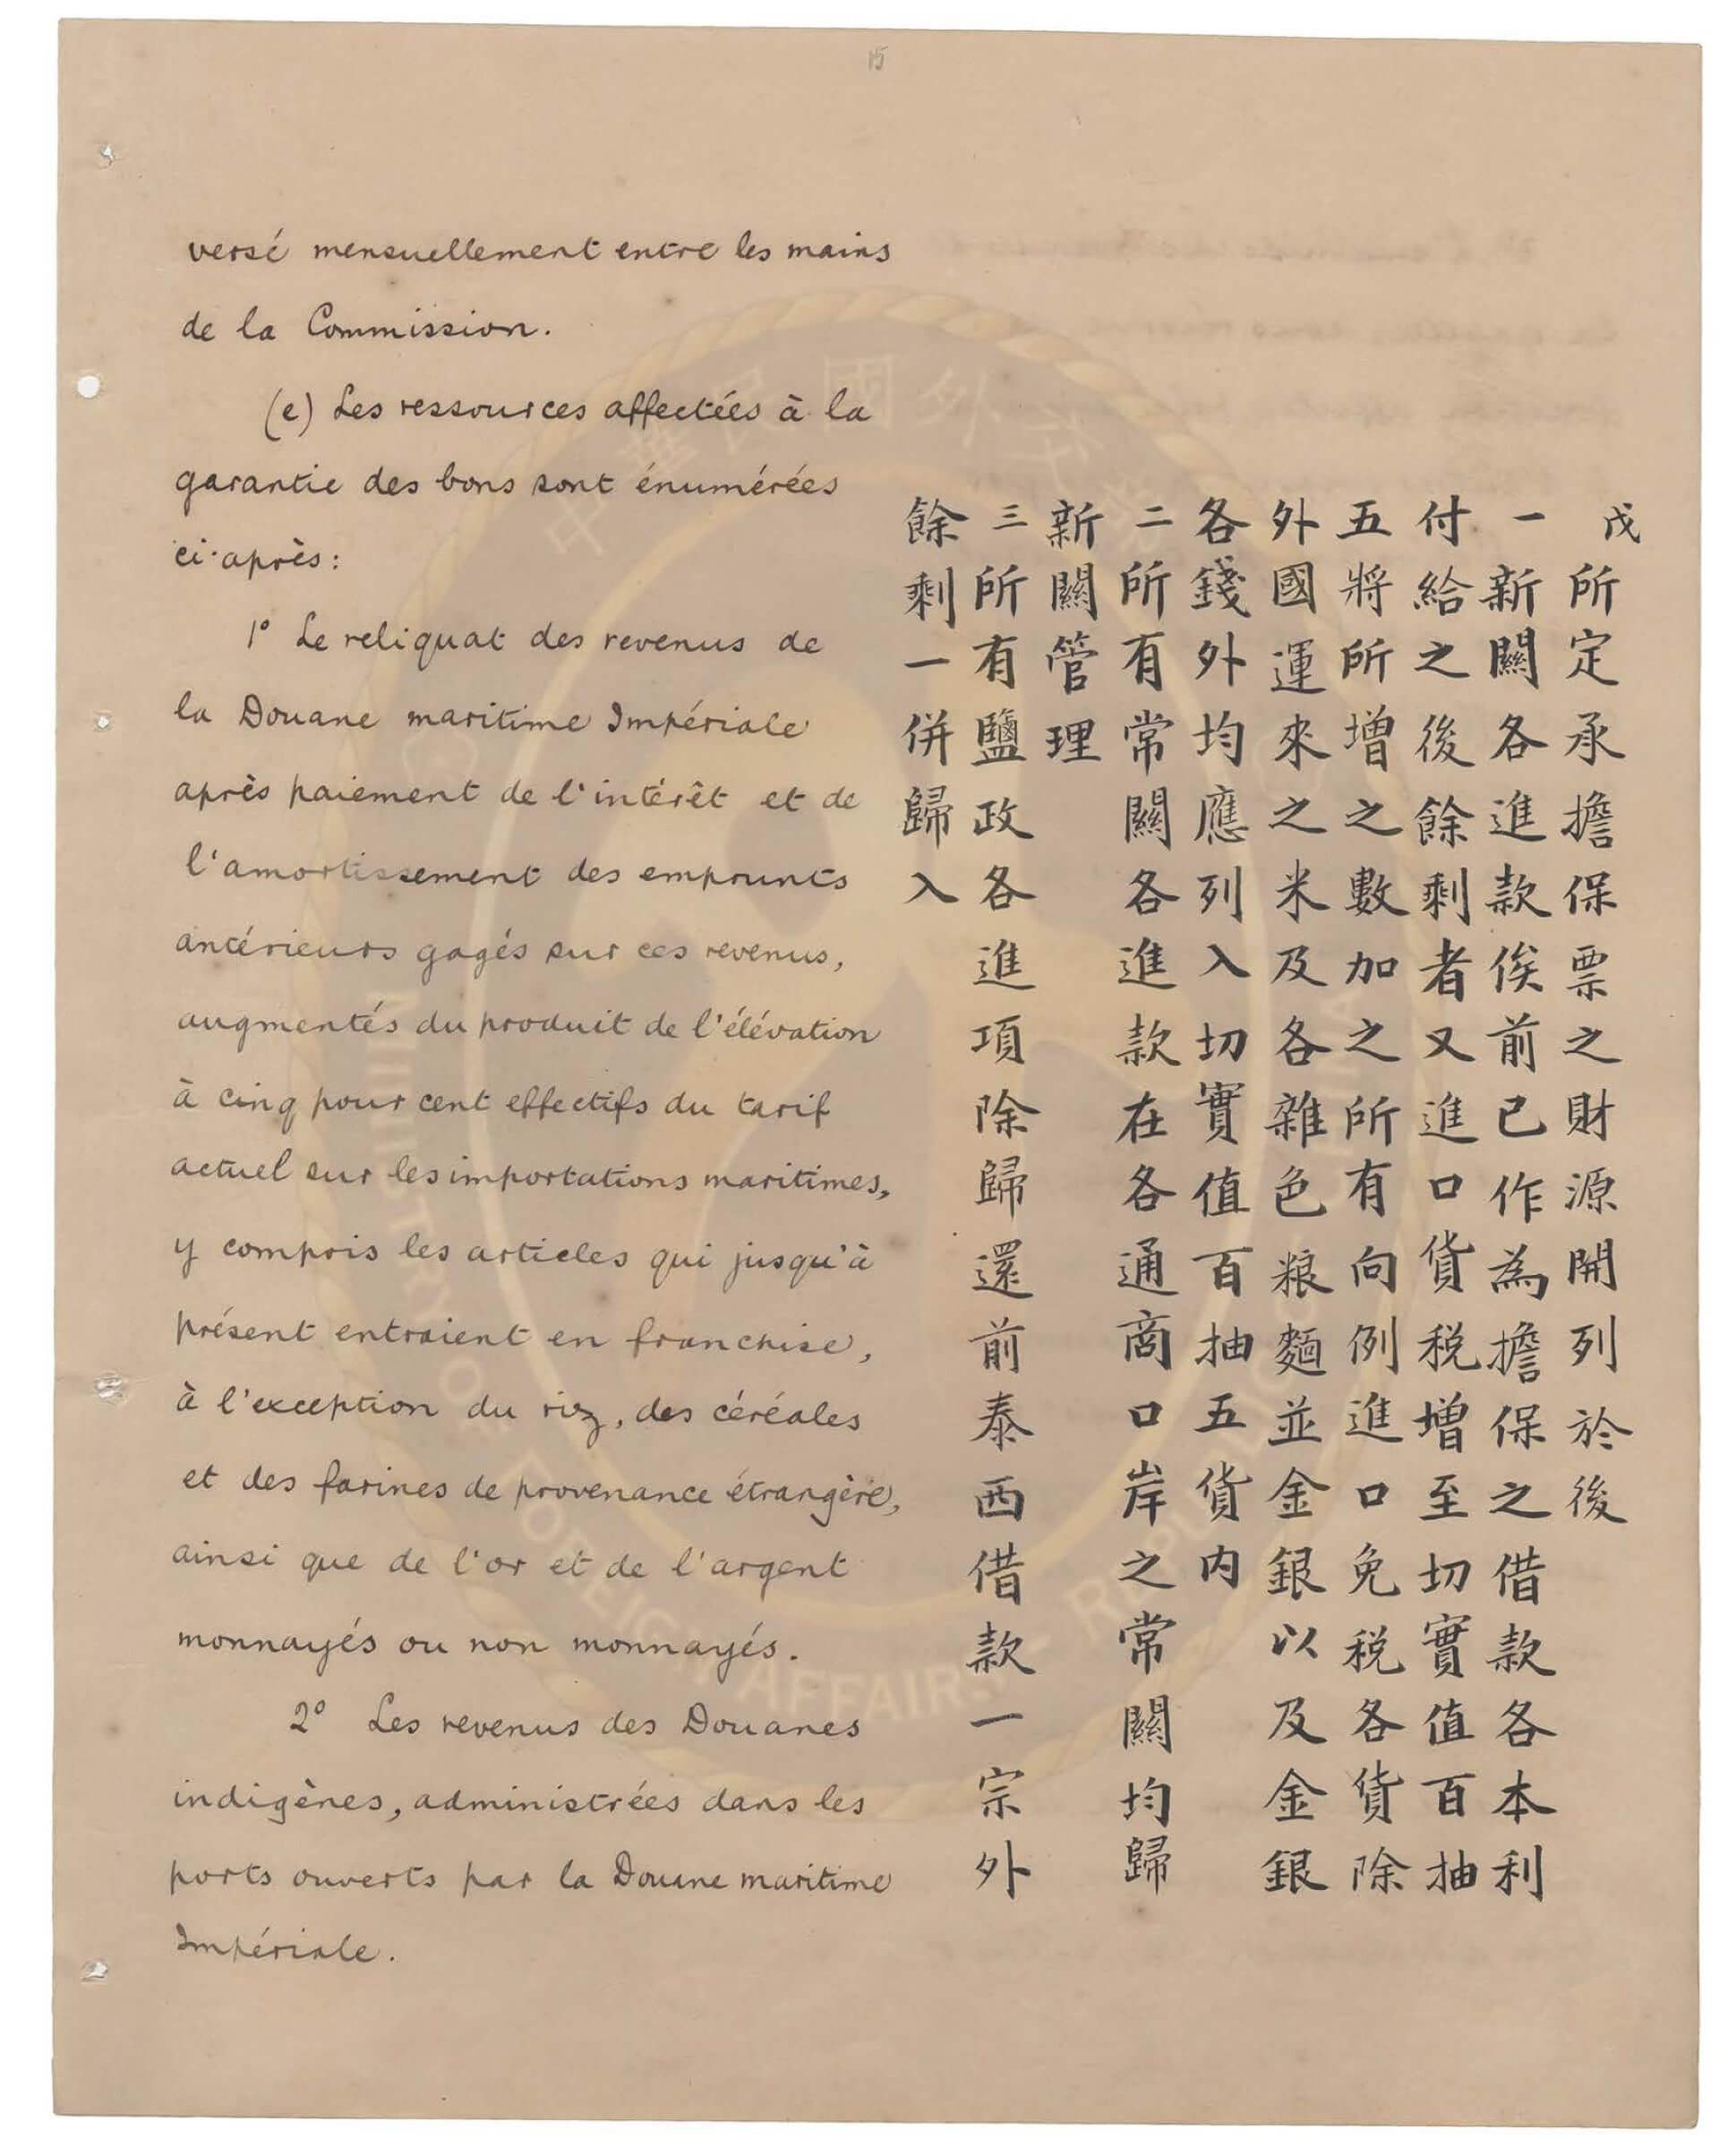 15
versé mensuellement entre les mains
de la Commission.
(e) Les ressources affectées à la
garantie des bons sont énumérées
ci-après:
1° Le reliquat des revenus de
la Douane maritime Impériale
après paiement de l'intérêt et de
l'amortissement des emprunts
antérieurs gagés sur ces revenus,
augmentés du produit de l'élévation
à cinq pour cent effectifs du tarif
actuel sur les importations maritimes,
y compris les articles qui jusqu'à
présent entraient en franchise,
à l'exception du riz, des céréales
et des farines de provenance étrangère,
ainsi que de l'or et de l'argent
monnayés ou non monnayés.
2° Les revenus des Douanes
indigènes, administrées dans les
ports ouverts par la Douane maritime
Impériale.
戊所定承擔保票之財源開列於後
一新關各進款俟前已作為擔保之借款各本利
付給之後餘剩者又進口貨税增至切實值百抽
五將所增之數加之所有向例進口免税各貨除
外國運來之米及各雜色粮麵並金銀以及金銀
各錢外均應列入切實值百抽五貨内
二所有常關各進款在各通商口岸之常關均歸
新關管理
三所有鹽政各進項除歸還前泰西借款一宗外
餘剩一併歸入
中華民國外交
MINISTRY OF FOREIGN AFFAIRS